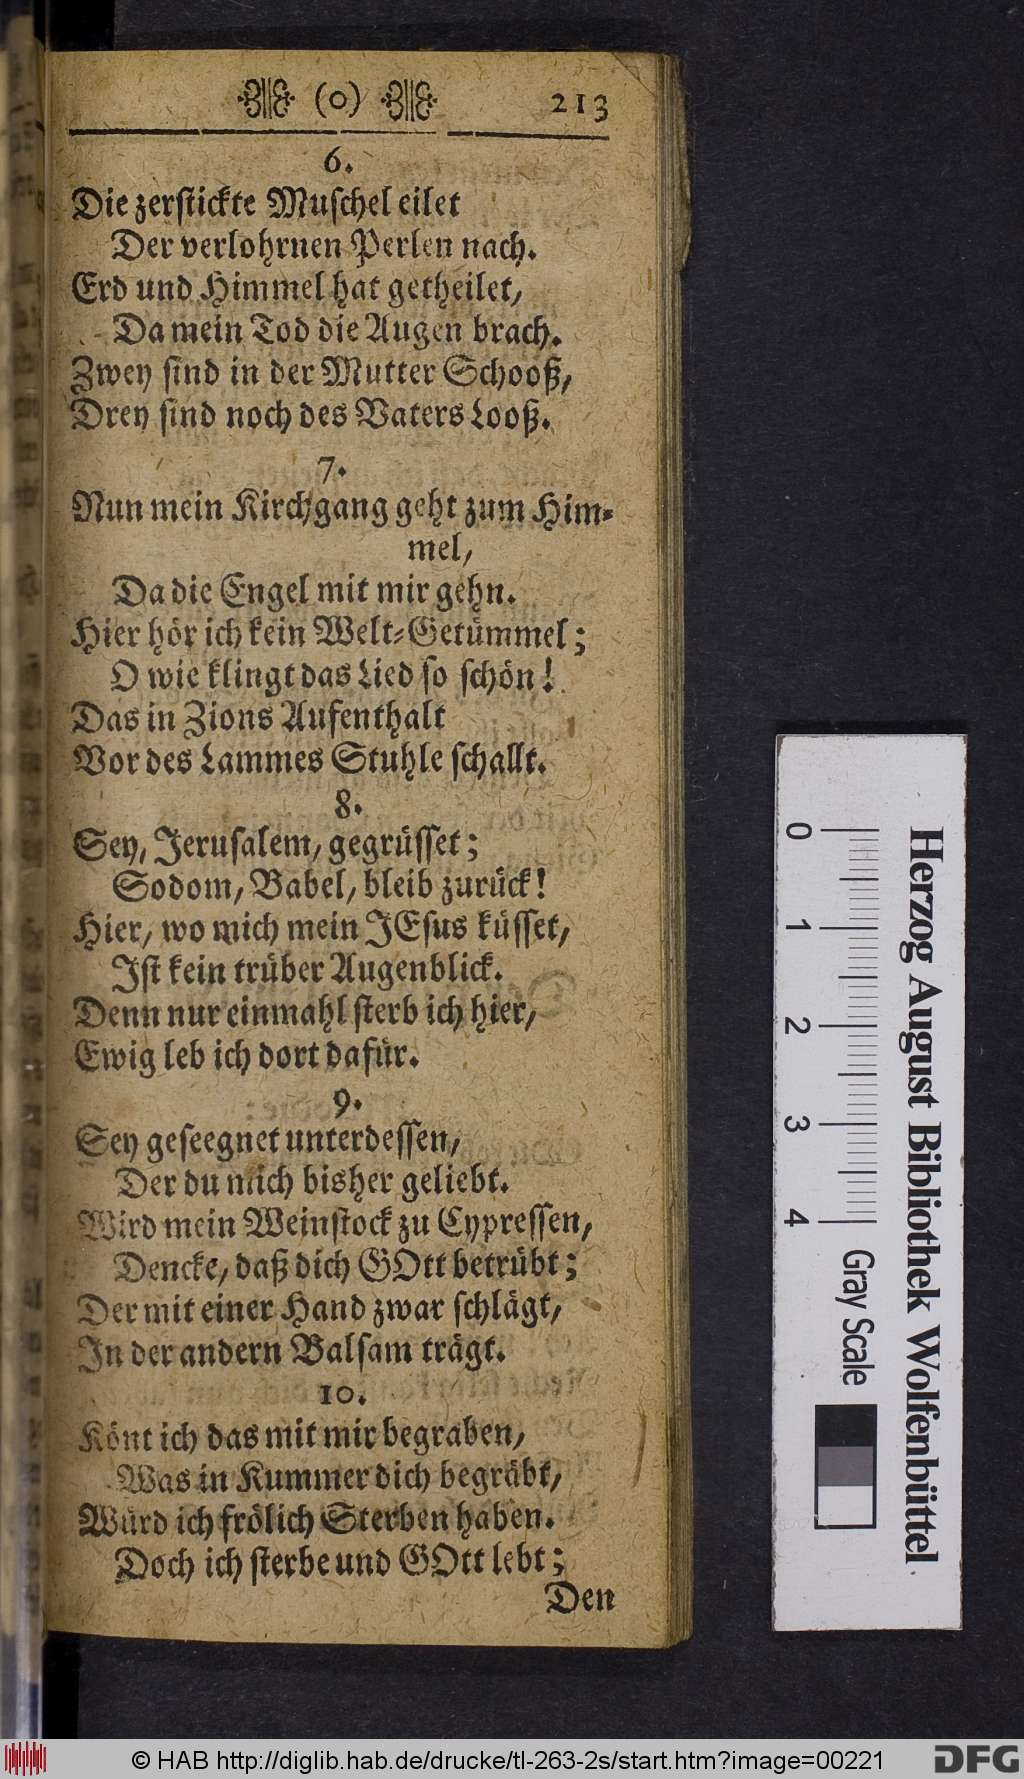 (o) 213
6.
Die zerstickte Muschel eilet
Der verlohrnen Perlen nach.
Erd und Himmel hat getheilet,
Da mein Tod die Augen brach.
Zwey sind in der Mutter Schooß,
Drey sind noch des Vaters Looß.
7.
Nun mein Kirchgang geht zum Him-
mel,
Da die Engel mit mir gehn.
Hier hör ich kein Welt-Getümmel;
O wie klingt das Lied so schön!
Das in Zions Aufenthalt
Vor des Lammes Stuhle schallt.
8.
Sey, Jerusalem, gegrüsset;
Sodom, Babel, bleib zurück!
Hier, wo mich mein JEsus küsset,
Ist kein trüber Augenblick.
Denn nur einmahl sterb ich hier,
Ewig leb ich dort dafür.
9.
Sey geseegnet unterdessen,
Der du mich bisher geliebt.
Wird mein Weinstock zu Cypressen,
Dencke, daß dich GOtt betrübt;
Der mit einer Hand zwar schlägt,
In der andern Balsam trägt.
10.
Könt ich das mit mir begraben,
Was in Kummer dich begräbt,
Würd ich frölich Sterben haben.
Doch ich sterbe und GOtt lebt;
Den
0 1 2 3 4 Gray Scale
Herzog August Bibliothek Wolfenbüttel
© HAB http://diglib.hab.de/drucke/tl-263-2s/start.htm?image=00221
DFG